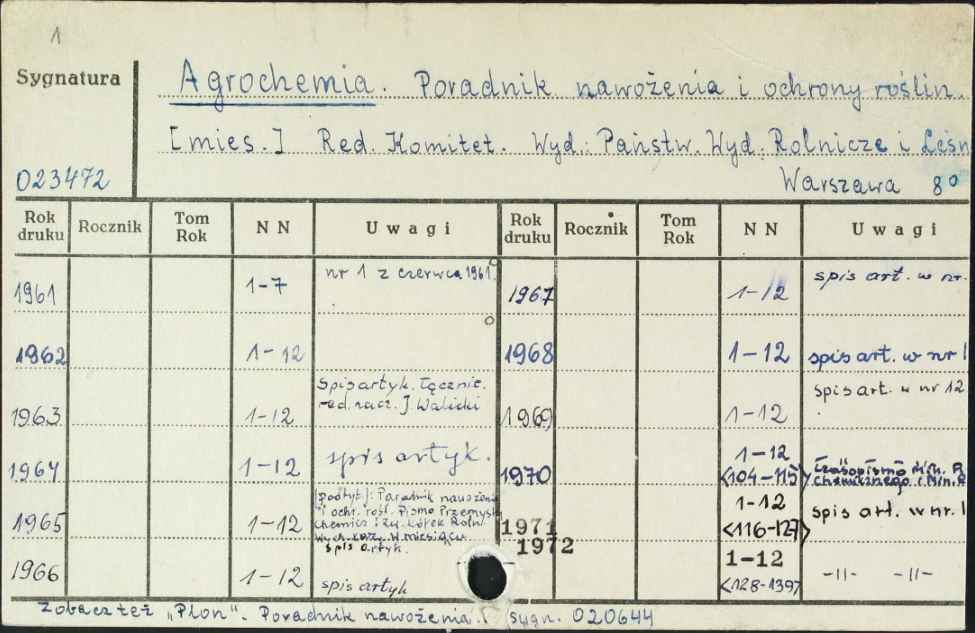 1
Sygnatura
Agrochemia. Poradnik nawożenia i ochrony roślin.
[mies.] Red. Komitet. Wyd.: Państw. Wyd. Rolnicze i Leśn
023472
Warszawa 8°
Rok druku Rocznik Tom Rok NN Uwagi Rok druku Rocznik Tom Rok NN Uwagi
1961 1-7 nr 1 z czerwca 1961.
1967 1-12 spis art. w nr.
1962 1-12
1968 1-12 spis art. w nr 1
1963 1-12 Spis artyk. łącznie.
red. nacz. J. Walicki
1969 1-12 spis art. w nr 12
1964 1-12 spis artyk.
1970 1-12
<104-115> Czasopismo Min. P.
chemicznego i Min. R
1965 1-12 [podtyt.]: Poradnik nawożenia
i ochr. rośl. Pismo Przemysłu
Chemicz i Zw. Kółek Roln.
w miesiącu
spis artyk.
1971 1-12
<116-127> spis art. w nr. 1
1966 1-12 spis artyk
1972 1-12
<128-139> -11- -11-
Zobacz też „Plon". Poradnik nawożenia. sygn. 020644